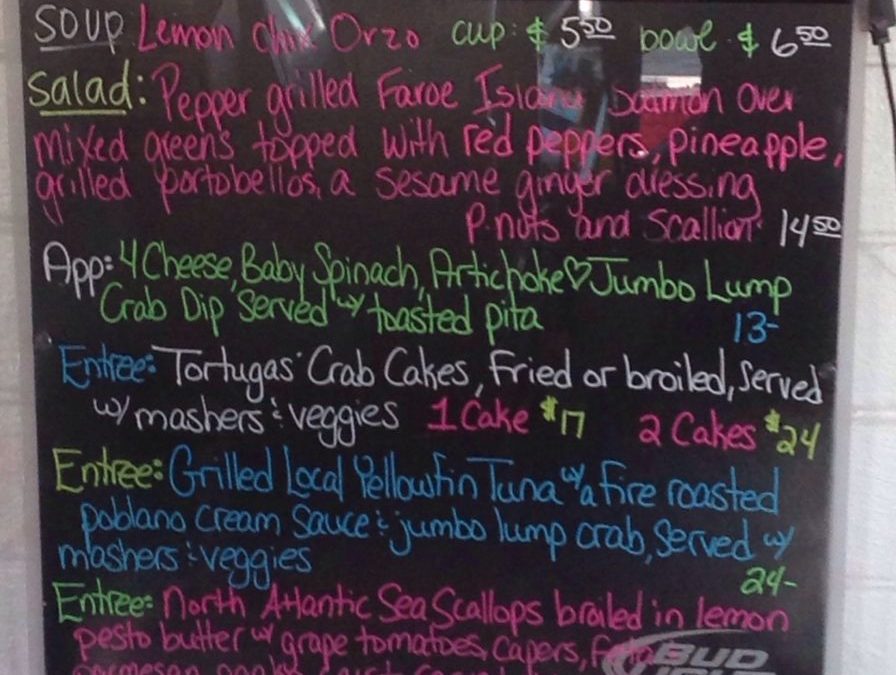 SOUP Lemon Chix Orzo cup: $ 5.50 bowl $ 6.50
Salad: Pepper grilled Faroe Island Salmon over
mixed greens topped with red peppers, pineapple,
grilled portobellos, a sesame ginger dressing
P.nuts and Scallion 14.50
App: 4 Cheese, Baby Spinach, Artichoke ♡ Jumbo Lump
Crab Dip Served w/ toasted pita
13-
Entree: Tortugas' Crab Cakes, Fried or broiled, Served
w/ mashers & veggies 1 Cake $17 2 Cakes $24
Entree: Grilled Local Yellowfin Tuna w/ a fire roasted
poblano cream sauce & jumbo lump crab, served w/
mashers & veggies
24-
Entree: North Atlantic Sea Scallops broiled in lemon
pesto butter w/ grape tomatoes, capers, feta
parmesan
BUD
LIGHT